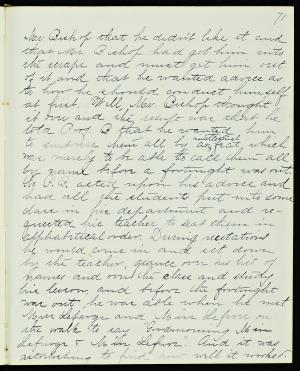 71
Mr. Bishop that he didn't like it and
that Mr. Bishop had got him into
the scrape and must get him out
of it and that he wanted advice as
to how he should conduct himself
at first. Well, Mr. Bishop thought
it over and the result was that he
told Prof. B that he wanted him
intellectual
to surprise them all by a feat which
was merely to be able to call them all
by name before a fortnight was out.
acted upon his advice and
had all the students put into some
class in his department and re-
quested his teacher to seat them in
alphabetical order. During recitation
he would come in and set down
by the teacher, glance over his list of
names and over the class and study
his lesson, and before the fortnight
was out, he was able when he met
Miss and Miss
on the walk to say "Goodmorning Miss
& Miss And it was
astonishing to find how well it worked.